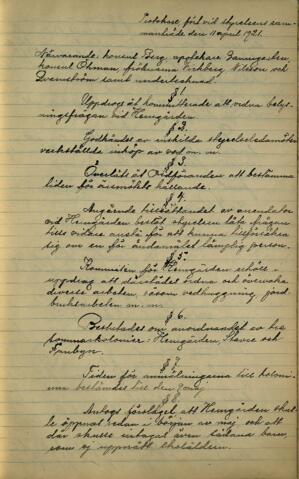 Protokoll fört vid styrelsens sam-
manträde den 11 april 1921.
Närvarande: konsul Berg, apotekare Danngarden,
konsul Öhman, fröknarna Kihlberg, Nilsson och
Svenström samt undertecknad.
§ 1.
Uppdrogs åt kommitterade att ordna belys-
ningsfrågan vid Hemgården.
§ 2.
Godkändes av enskilda styrelseledamöter
verkställda inköp av ved m. m.
§ 3.
Överläts åt ordföranden att bestämma
tiden för årsmötets hållande.
§ 4.
Angående tillsättandet av
vid Hemgården beslöt styrelsen låta frågan
tills vidare anstå för att kunna tillförsäkra
sig om en för ändamålet lämplig person.
§ 5.
Kommittén för Hemgården erhöll i
uppdrag att därstädes ordna och övervaka
diverse arbeten, såsom vedhuggning, jord-
bruksarbeten m. m.
§ 6.
Beslutades om anordnandet av tre
sommarkolonier: Hemgården, och
§ 7.
Tiden för anmälningarna till koloni-
erna bestämdes till den 2 maj.
§ 8.
Antogs förslaget att Hemgården skul-
le öppnas redan i början av maj och att
där skulle intagas även sådana barn,
som ej uppnått skolåldern.